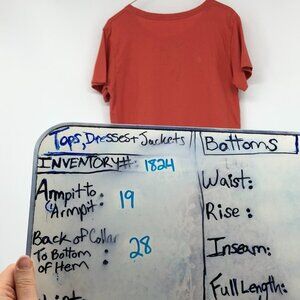 Tops, Dresses + Jackets
INVENTORY#: 1824
Armpit to
Armpit: 19
Back of Collar
To Bottom
of Hem: 28
Bottoms
Waist:
Rise:
Inseam:
Full Length: